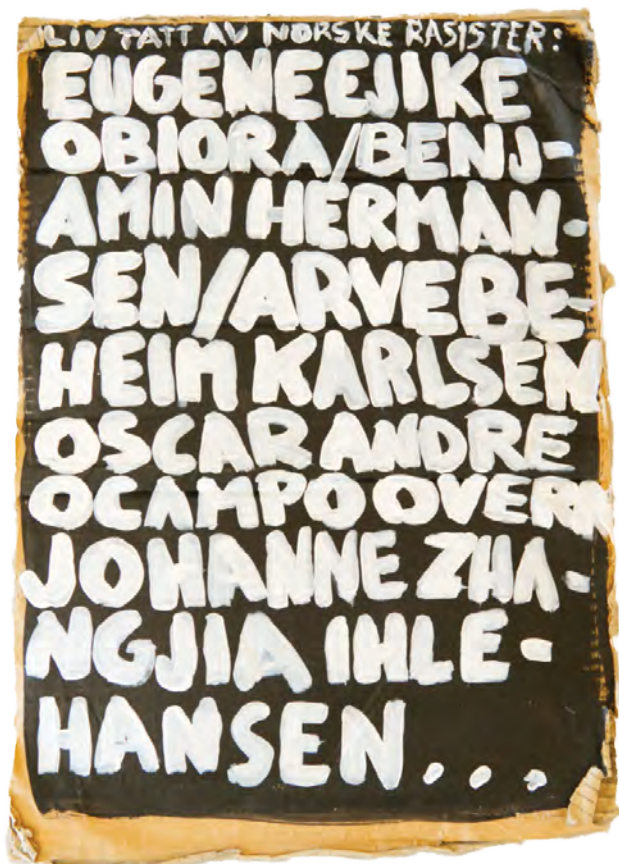 LIV TATT AV NORSKE RASISTER:
EUGENE EJIKE
OBIORA/BENJ-
AMIN HERMAN-
SEN/ARVE BE-
HEIM KARLSEN
OSCAR ANDRE
OCAMPO OVERN
JOHANNE ZHA-
NGJIA IHLE-
HANSEN...